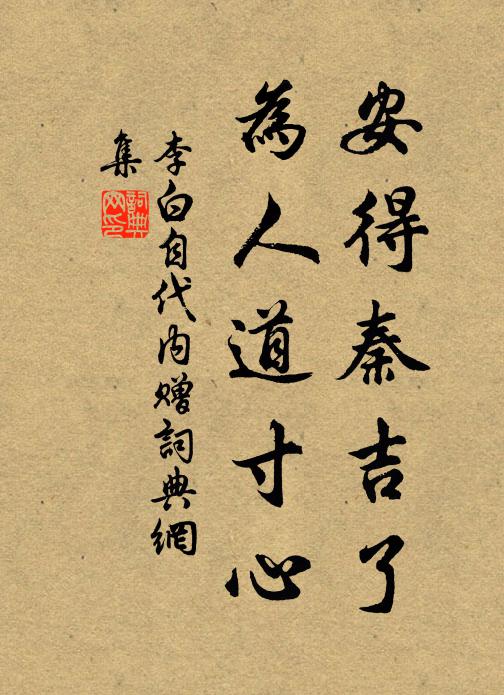 安得秦吉了
為人道寸心
李白自代內赠詞典網
集
詞典
网印